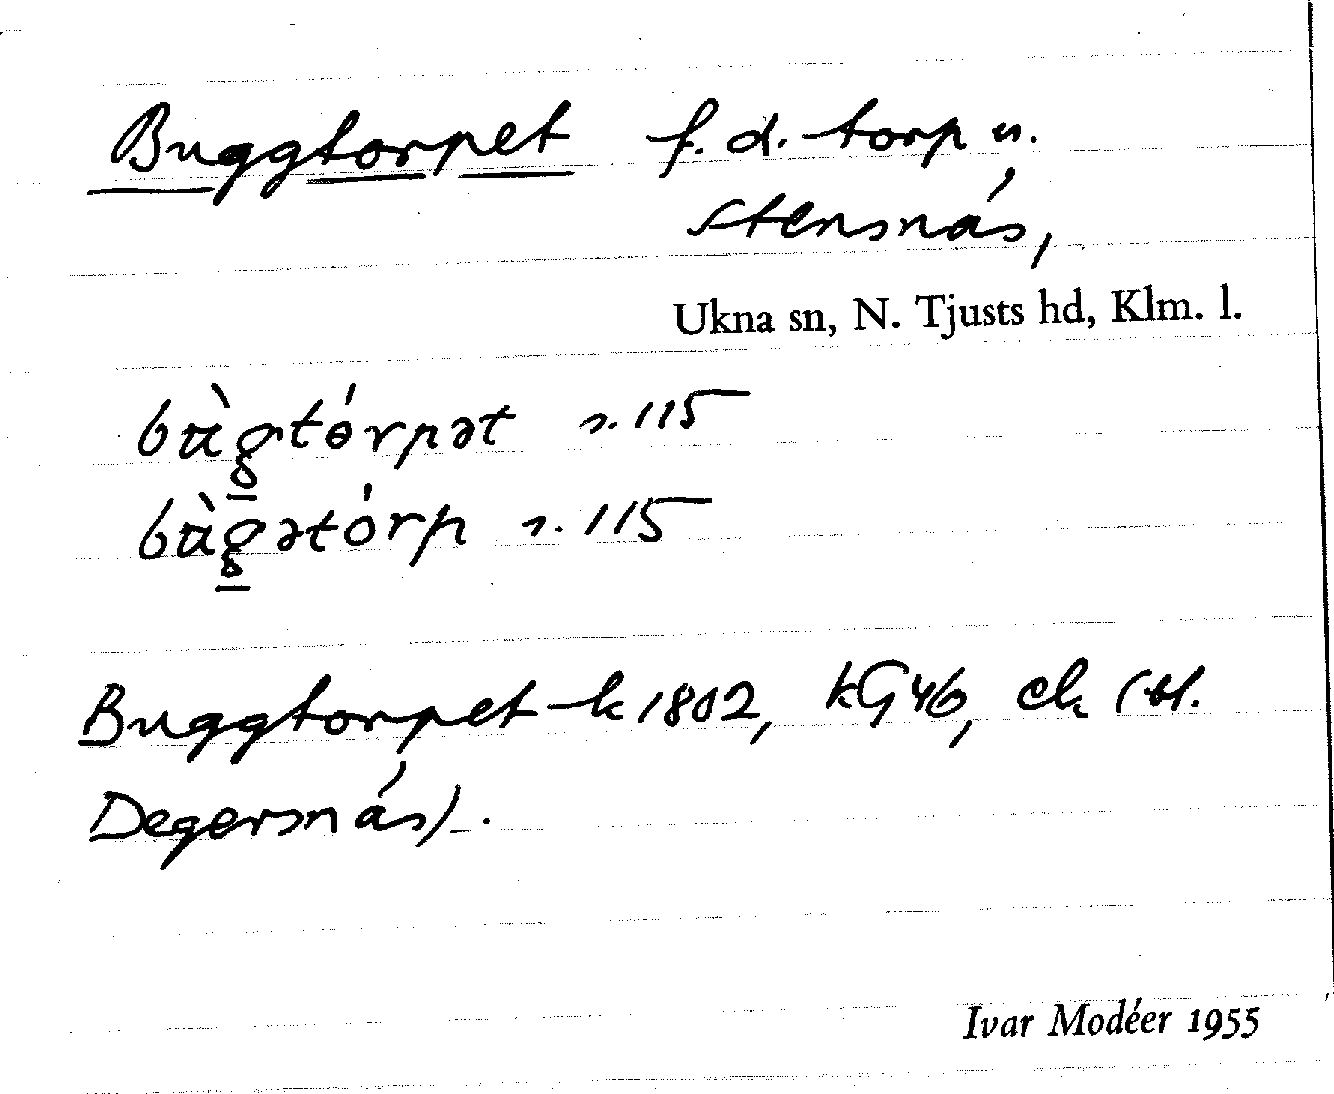 Buggtorpet f. d. torp u.
Stensnäs,
Ukna sn, N. Tjusts hd, Klm. l.
bùgtórpət s. 115
bùgətórp s. 115
Buggtorpet k 1802, kG 46, ek (bl.
Degersnäs).
Ivar Modéer 1955